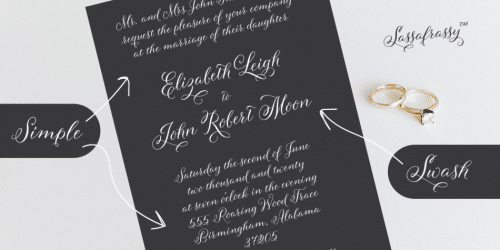 Mr. and Mrs. John
request the pleasure of your company
at the marriage of their daughter
Elizabeth Leigh
to
John Robert Moon
Saturday the second of June
two thousand and twenty
at seven o'clock in the evening
555 Roaring Wood Trace
Birmingham, Alabama
37205
Sassafrassy™
Simple
Swash